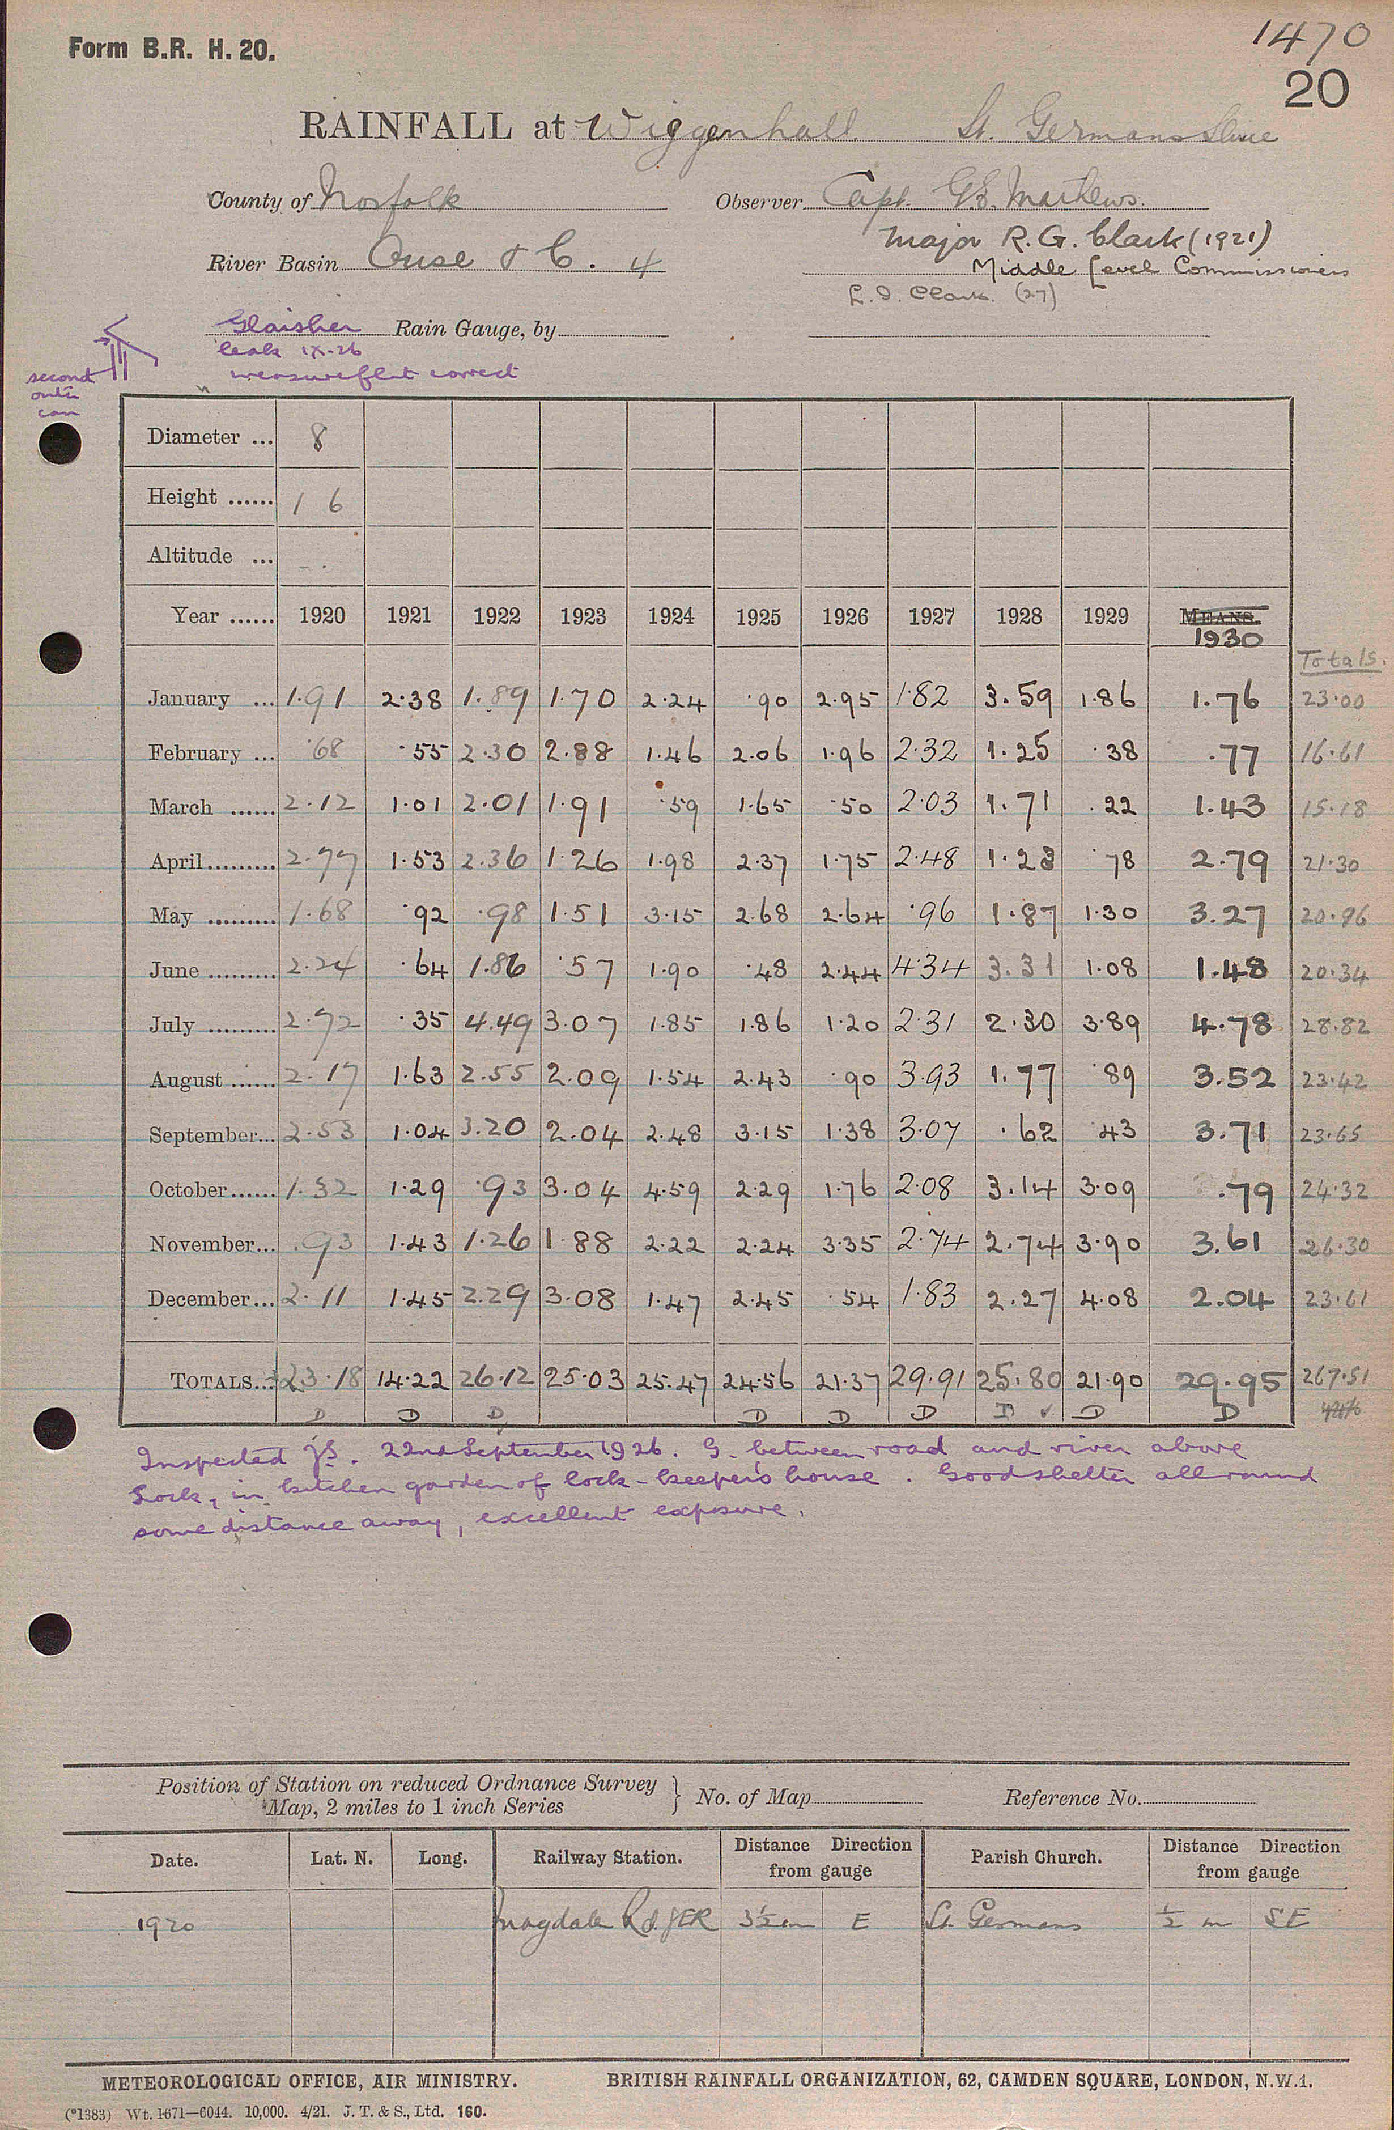 Form B.R. H. 20.
1470
20
RAINFALL at Wiggenhall St. Germans Sluice
County of Norfolk Observer Capt. G.E. Mathews.
Major R.G. Clark (1921)
River Basin Ouse & C. 4
Middle Level Commissioners
(27)
Glaisher Rain Gauge, by
leak IX-26
second
outer
can
measure flat correct
Diameter ... 8
Height ...... 1 6
Altitude ...
Year ...... 1920 1921 1922 1923 1924 1925 1926 1927 1928 1929 MEANS.
1930
Totals.
January ... 1.91 2.38 1.89 1.70 2.24 .90 2.95 1.82 3.59 1.86 1.76 23.00
February ... .68 .55 2.30 2.88 1.46 2.06 1.96 2.32 1.25 .38 .77 16.61
March ...... 2.12 1.01 2.01 1.91 .59 1.65 .50 2.03 1.71 .22 1.43 15.18
April ......... 2.77 1.53 2.36 1.26 1.98 2.37 1.75 2.48 1.23 .78 2.79 21.30
May ......... 1.68 .92 .98 1.51 3.15 2.68 2.64 .96 1.87 1.30 3.27 20.96
June ......... 2.24 .64 1.86 .57 1.90 .48 2.44 4.34 3.31 1.08 1.48 20.34
July ......... 2.72 .35 4.49 3.07 1.85 1.86 1.20 2.31 2.30 3.89 4.78 28.82
August ...... 2.17 1.63 2.55 2.09 1.54 2.43 .90 3.93 1.77 .89 3.52 23.42
September... 2.53 1.04 3.20 2.04 2.48 3.15 1.38 3.07 .62 .43 3.71 23.65
October...... 1.32 1.29 .93 3.04 4.59 2.29 1.76 2.08 3.14 3.09 .79 24.32
November... .93 1.43 1.26 1.88 2.22 2.24 3.35 2.74 2.74 3.90 3.61 26.30
December... 2.11 1.45 2.29 3.08 1.47 2.45 .54 1.83 2.27 4.08 2.04 23.61
TOTALS... 23.18 14.22 26.12 25.03 25.47 24.56 21.37 29.91 25.80 21.90 29.95 267.51
D D D D D D D ✓ D D
Inspected J.S. 22nd September 1926. G. between road and river above
Lock, in kitchen garden of lock-keeper's house. Good shelter all round
some distance away, excellent exposure.
Position of Station on reduced Ordnance Survey } No. of Map Reference No.
Map, 2 miles to 1 inch Series
Date. Lat. N. Long. Railway Station. Distance Direction from gauge Parish Church. Distance Direction from gauge
1920 Magdalen Rd. GER 3½ m E St. Germans ½ m SE
METEOROLOGICAL OFFICE, AIR MINISTRY. BRITISH RAINFALL ORGANIZATION, 62, CAMDEN SQUARE, LONDON, N.W.1.
(*1383) Wt. 1671—6044. 10,000. 4/21. J. T. & S., Ltd. 160.